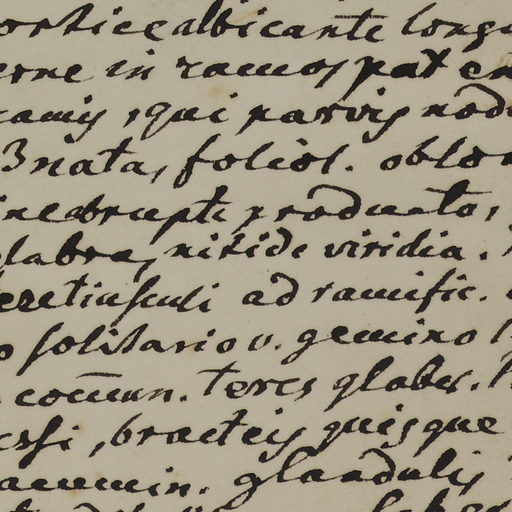 cortice albicante long
erne in ramos paten
ramis, qui parvis nod
3nata, folios. oblon
ine abrupte producto,
glabra, nitide viridia.
teretiusculi ad ramific.
o solitario v. gemino
com̄un. teres glaber.
ersi, bracteis quisque
acumin. glandulis